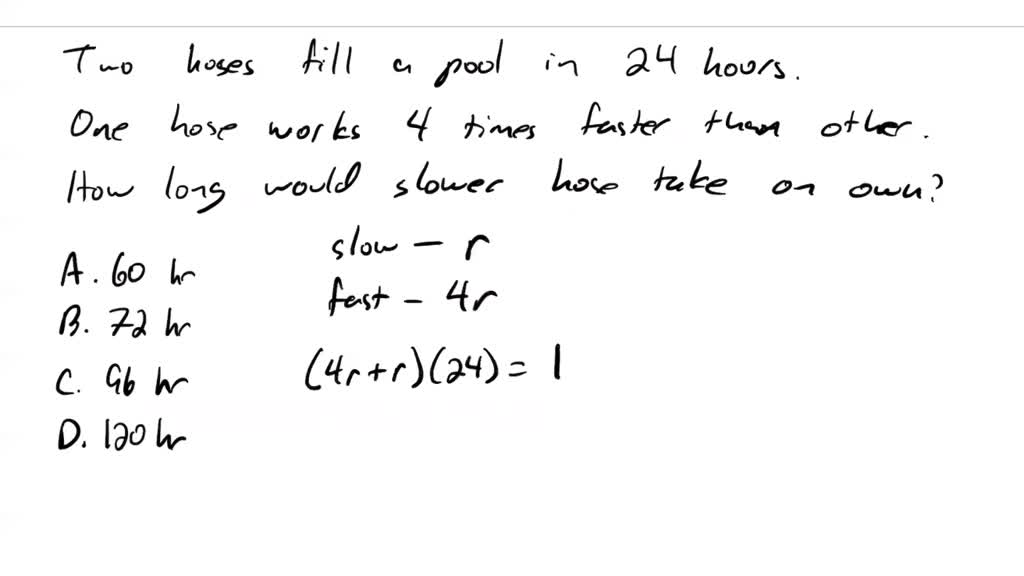 Two hoses fill a pool in 24 hours.
One hose works 4 times faster than other.
How long would slower hose take on own?
A. 60 hr
B. 72 hr
C. 96 hr
D. 120 hr
slow - r
fast - 4r
(4r+r)(24) = 1